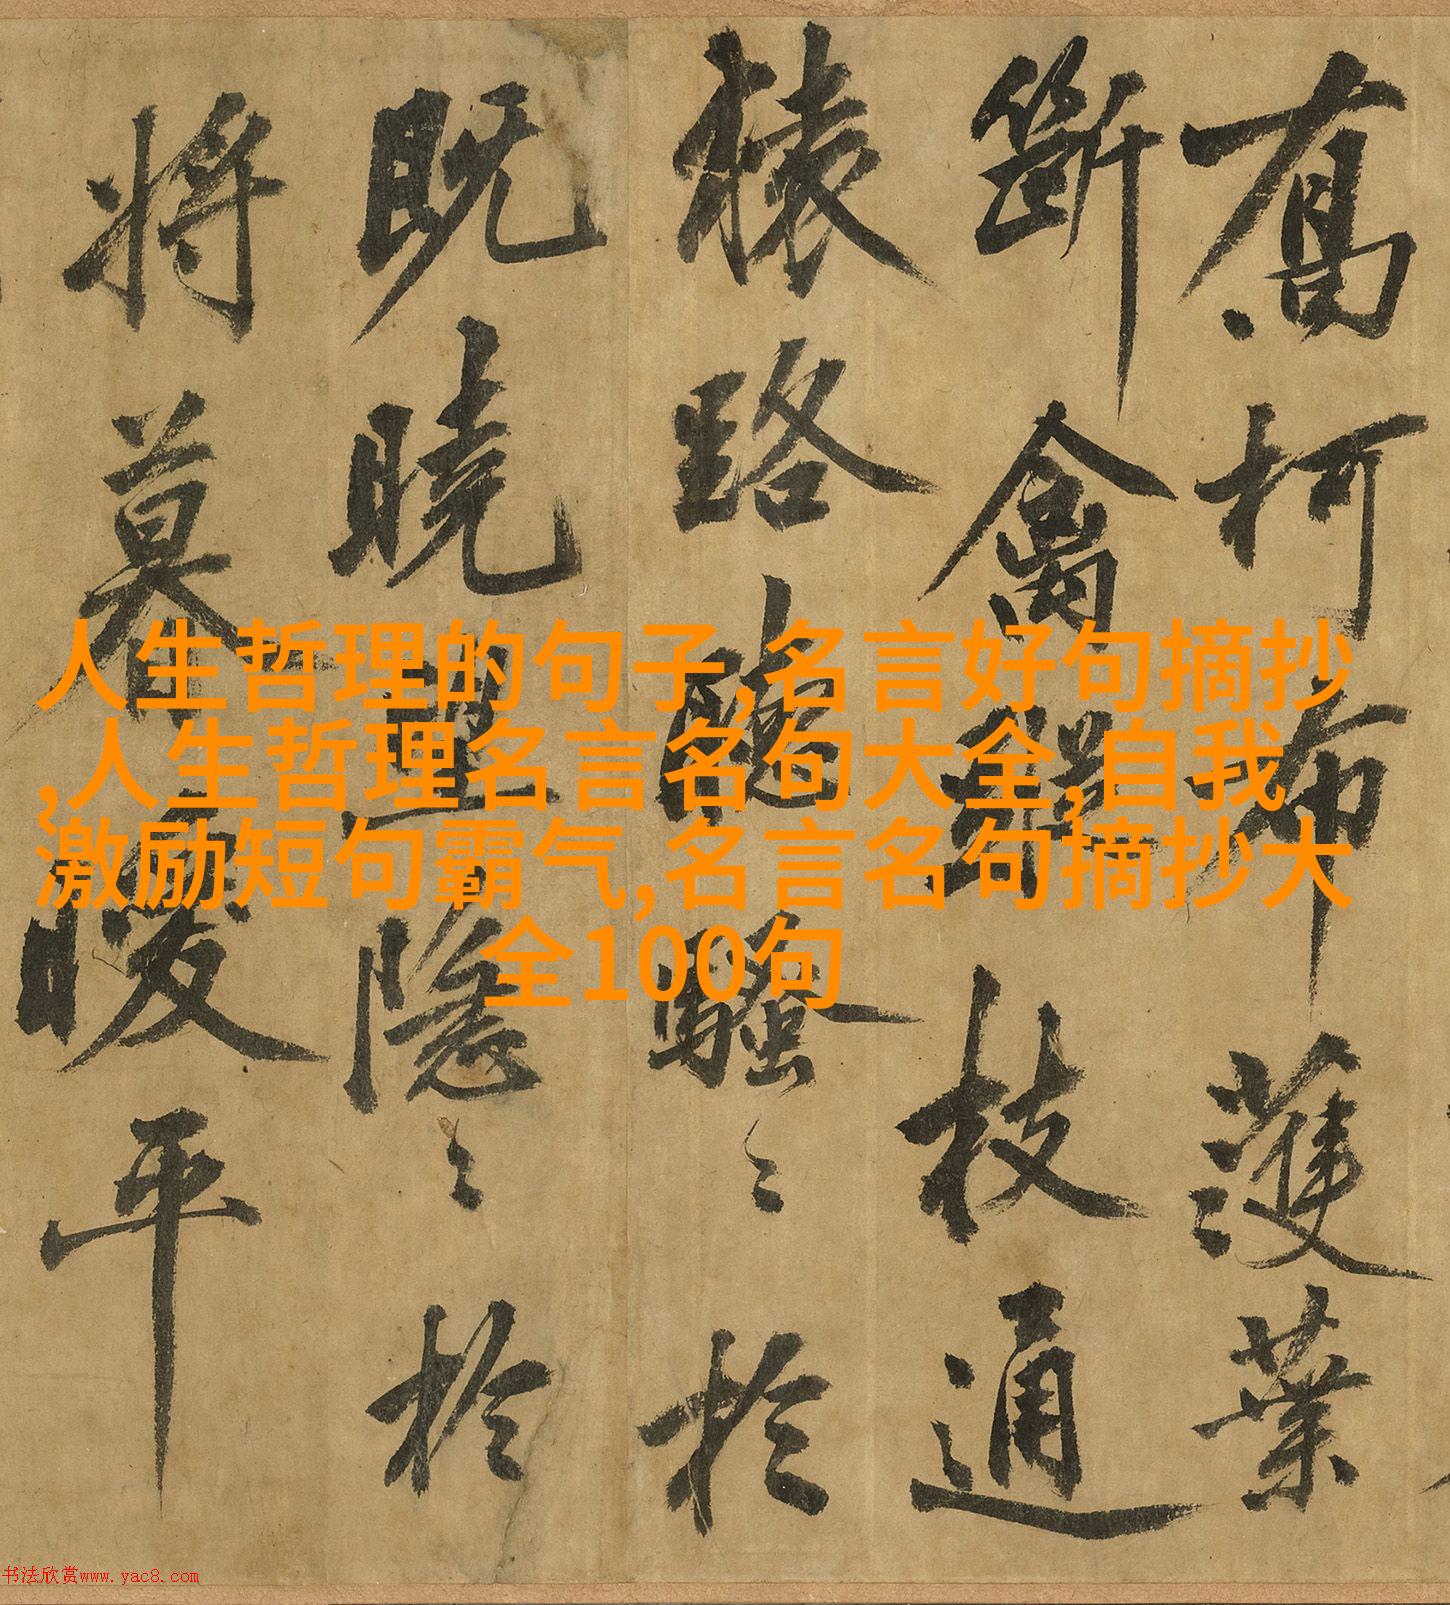 喬柯布濩葉
斷禽枝通
猿路騷〻於
既曉隱〻於
將暮暖平
人生哲理的句子,名言好句摘抄
,人生哲理名言名句大全,自我
激励短句霸气,名言名句摘抄大
全100句
书法欣赏www.yac8.com